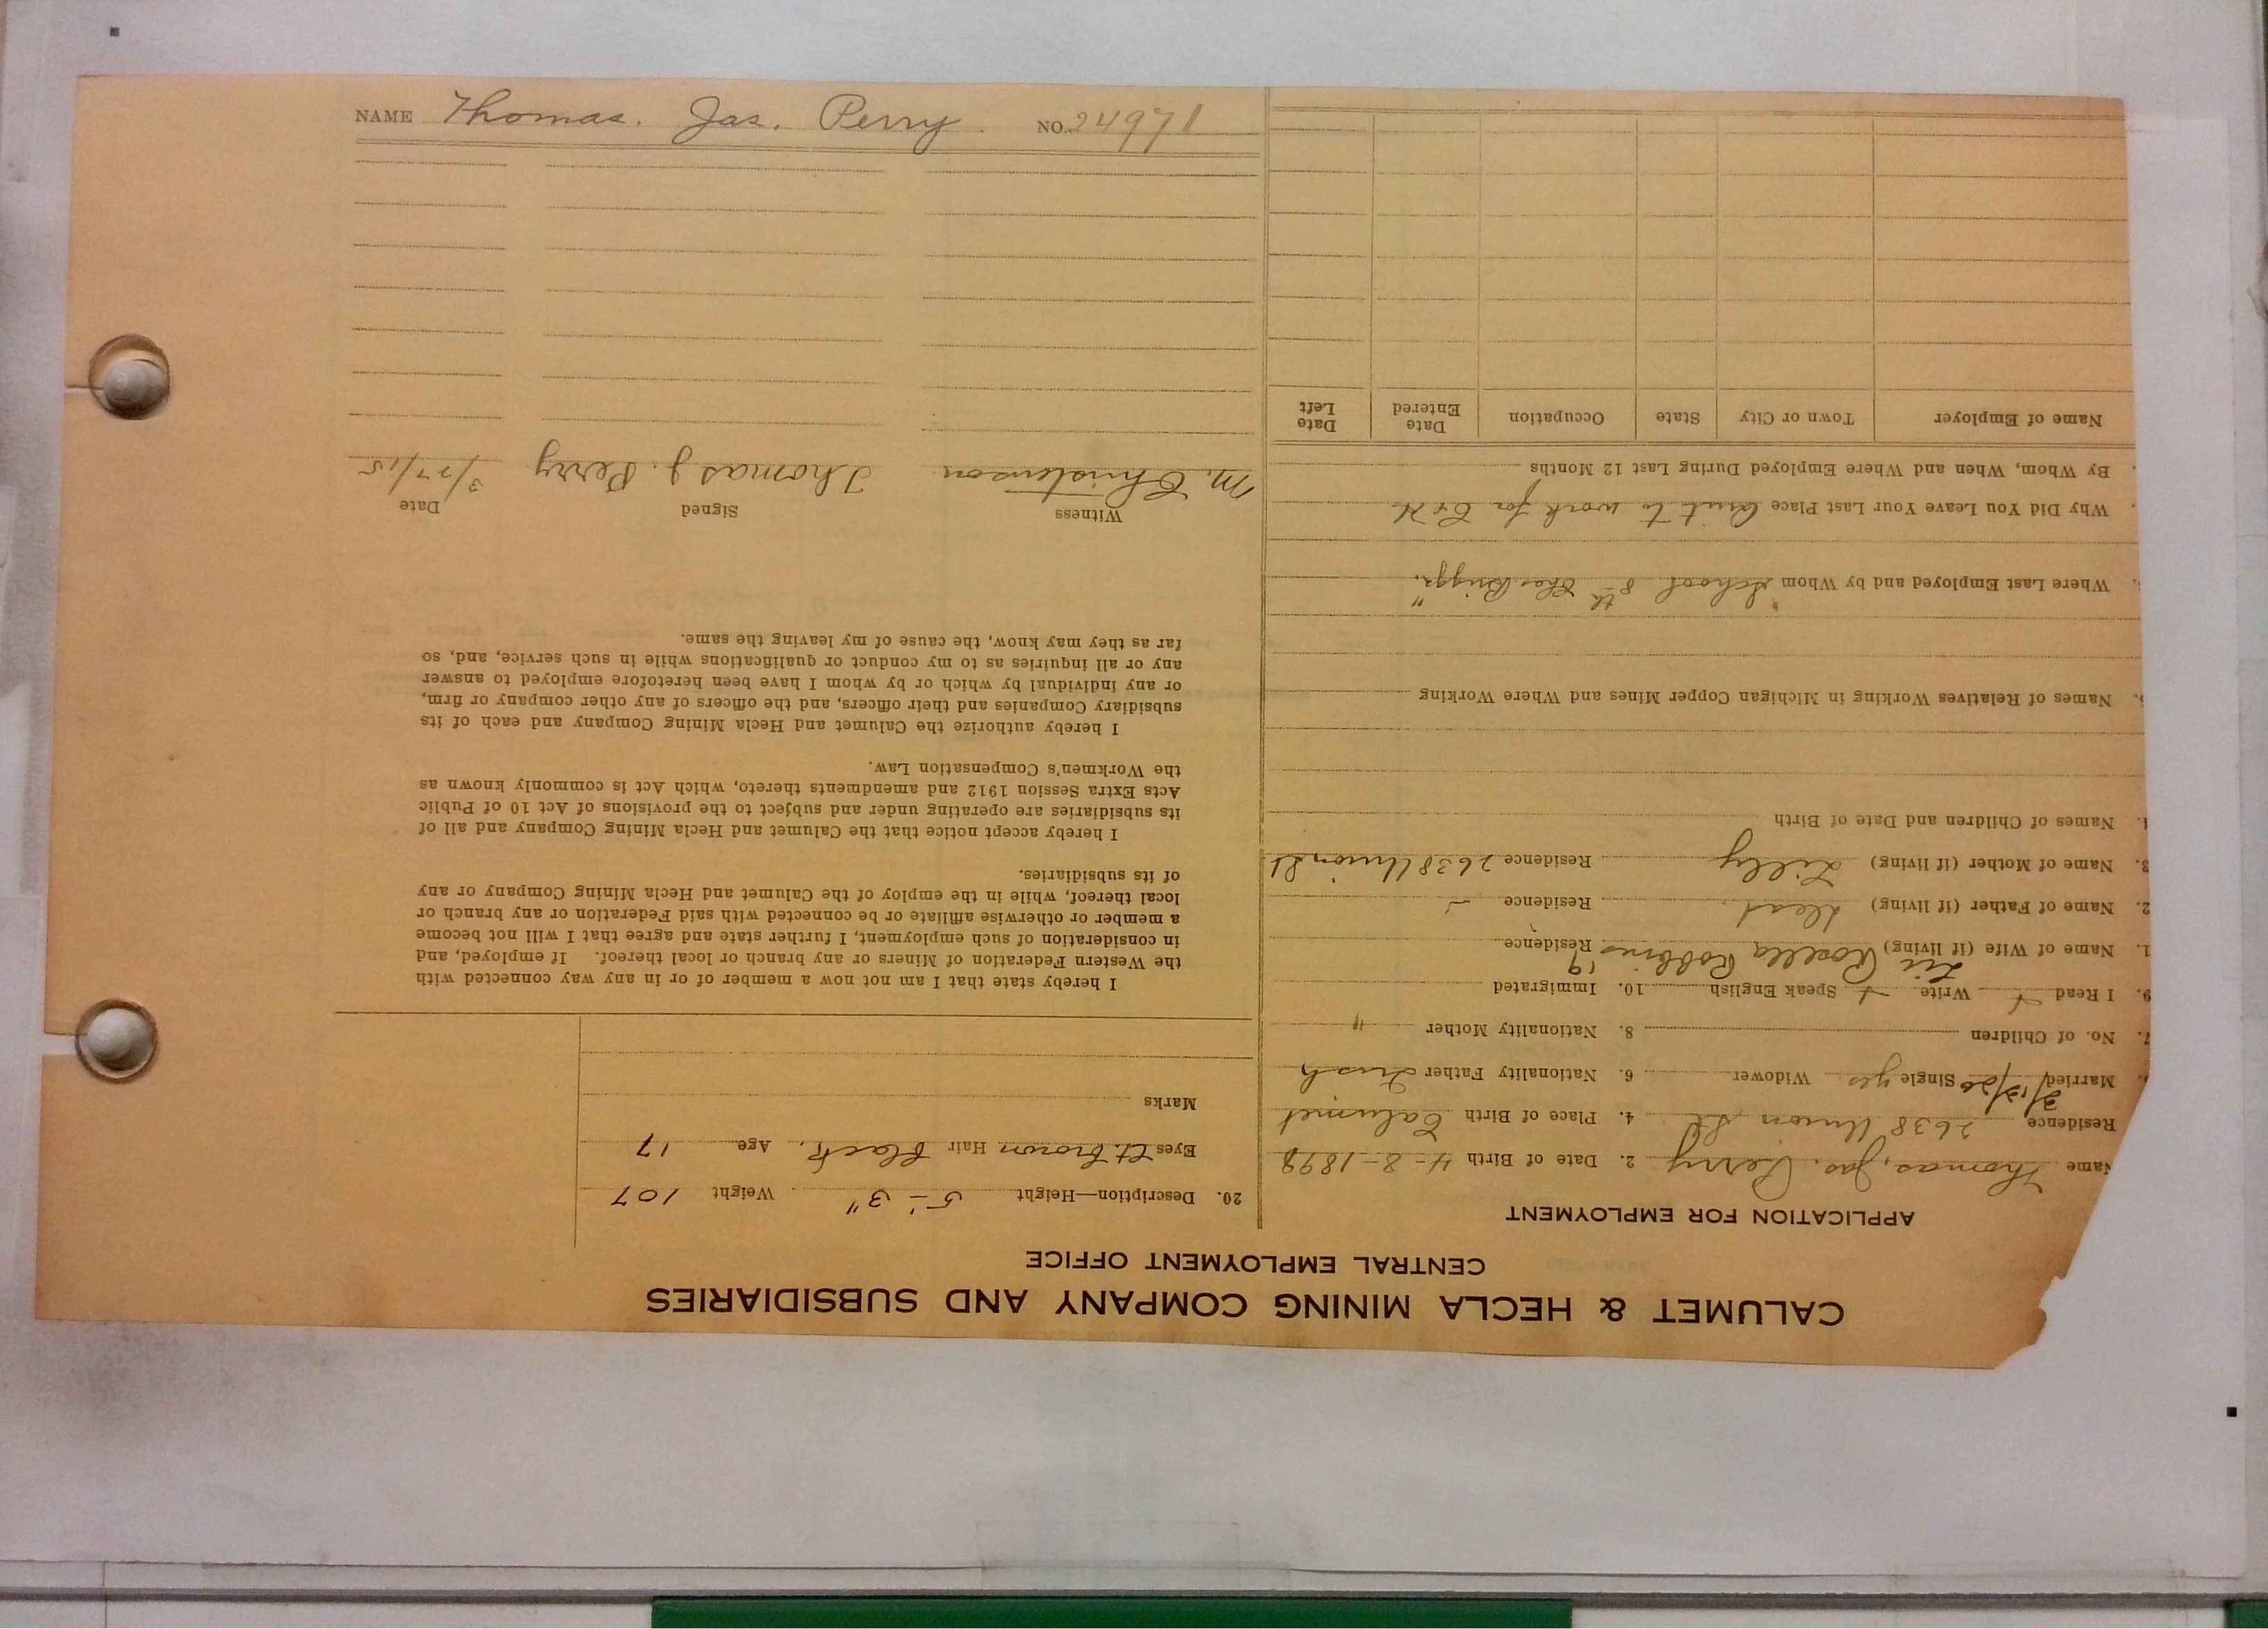 NAME Thomas. Jas. Perry. NO. 24971
CALUMET & HECLA MINING COMPANY AND SUBSIDIARIES
CENTRAL EMPLOYMENT OFFICE
APPLICATION FOR EMPLOYMENT
Name Thomas, Jas. Perry 2. Date of Birth 4-8-1898
Residence 2638 Union St 4. Place of Birth Calumet
Married Single yes Widower 6. Nationality Father Irish
7. No. of Children 8. Nationality Mother "
9. I Read Write Speak English 10. Immigrated
1. Name of Wife (if living) Rosella Robbins Residence
2. Name of Father (if living) Dead Residence -
3. Name of Mother (if living) Lilly Residence 2638 Union St.
4. Names of Children and Date of Birth
5. Names of Relatives Working in Michigan Copper Mines and Where Working
Where Last Employed and by Whom "School 8th Chas Briggs"
Why Did You Leave Your Last Place Quit to work for C & H
By Whom, When and Where Employed During Last 12 Months
Name of Employer Town or City State Occupation Date Entered Date Left
20. Description—Height 5'-3" Weight 107
Eyes Lt. Brown Hair Black. Age 17
Marks
I hereby state that I am not now a member of or in any way connected with
the Western Federation of Miners or any branch or local thereof. If employed, and
in consideration of such employment, I further state and agree that I will not become
a member or otherwise affiliate or be connected with said Federation or any branch or
local thereof, while in the employ of the Calumet and Hecla Mining Company or any
of its subsidiaries.
I hereby accept notice that the Calumet and Hecla Mining Company and all of
its subsidiaries are operating under and subject to the provisions of Act 10 of Public
Acts Extra Session 1912 and amendments thereto, which Act is commonly known as
the Workmen's Compensation Law.
I hereby authorize the Calumet and Hecla Mining Company and each of its
subsidiary Companies and their officers, and the officers of any other company or firm,
or any individual by which or by whom I have been heretofore employed to answer
any or all inquiries as to my conduct or qualifications while in such service, and, so
far as they may know, the cause of my leaving the same.
Witness Signed Date
M. Christenson Thomas J. Perry 3/27/15